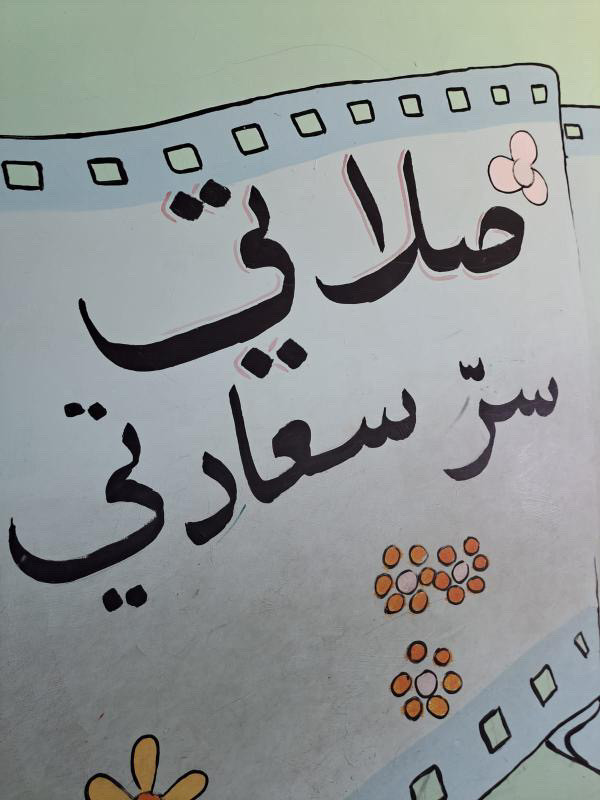 صلاتي
سرّ سعادتي